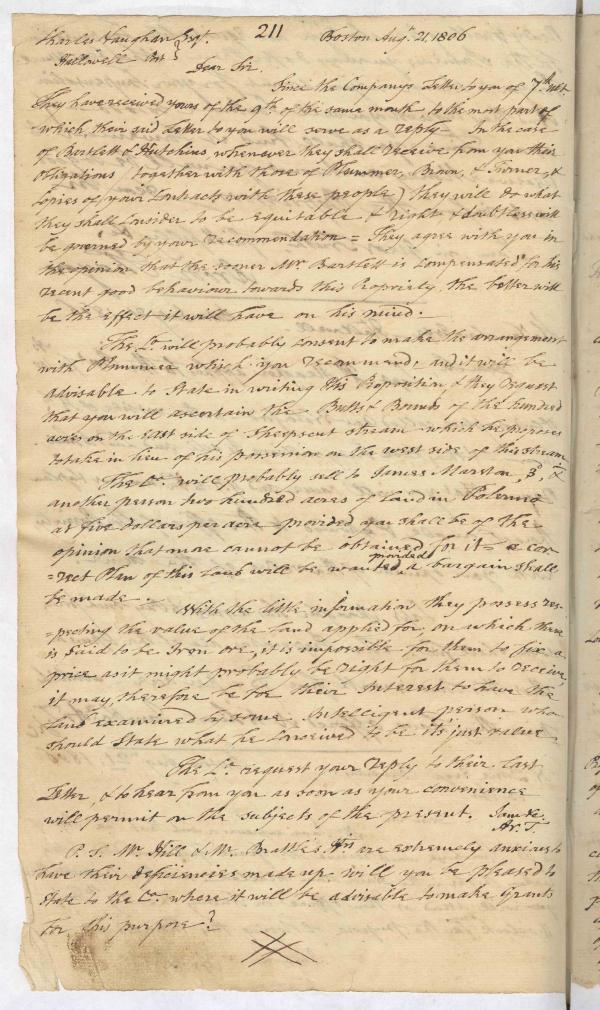 Charles Vaughan Esqr. 211 Boston Augt. 21. 1806
Hallowell
Dear Sir.
Since the Company's Letter to you of 7th. ult
They have received yours of the 9th. of the same month to the most part of
which, their said Letter to you will serve as a reply - In the case
of Bartlett & Hutchins whenever they shall receive from you their
obligations (together with those of Plummer, Brown, & Turner, &
Copies of your Contracts with these people) they will do what
they shall consider to be equitable & right & doubtless will
be governed by your recommendation = They agree with you in
the opinion that the sooner Mr. Bartlett is compensated for his
recent good behaviour towards this Propriety, the better will
be the effect it will have on his mind.
The Co. will probably consent to make the arrangement
with Plummer which you recommend, and it will be
advisable to State in writing this Proposition, & they request
that you will ascertain the Butts & Bounds of the hundred
acres on the East side of Sheepscut stream which he proposes
to take in lieu of his possession on the west side of this stream
The Co. will probably sell to James Marston, 3d, &
another person two hundred acres of Land in Palermo
at five Dollars per acre provided you shall be of the
opinion that more cannot be obtained for it = a cor-
=rect Plan of this Land will be wanted, provided a bargain shall
be made.
With the little information they possess res-
=pecting the value of the Land applied for, on which there
is said to be Iron ore, it is impossible for them to fix a
price as it might probably be right for them to receive,
it may, therefore be for their Interest to have the
Land examined by some Intelligent person who
should State what he conceived to be its just value.
The Co. request your reply to their last
Letter, & to hear from you as soon as your convenience
will permit on the subjects of the present. I am &c.
Ar. T.
P. S. Mr. Hill & Mr. Brattle's Hrs are extremely anxious to
have their deficiencies made up will you be pleased to
State to the Co. where it will be advisable to make Grants
for this purpose?